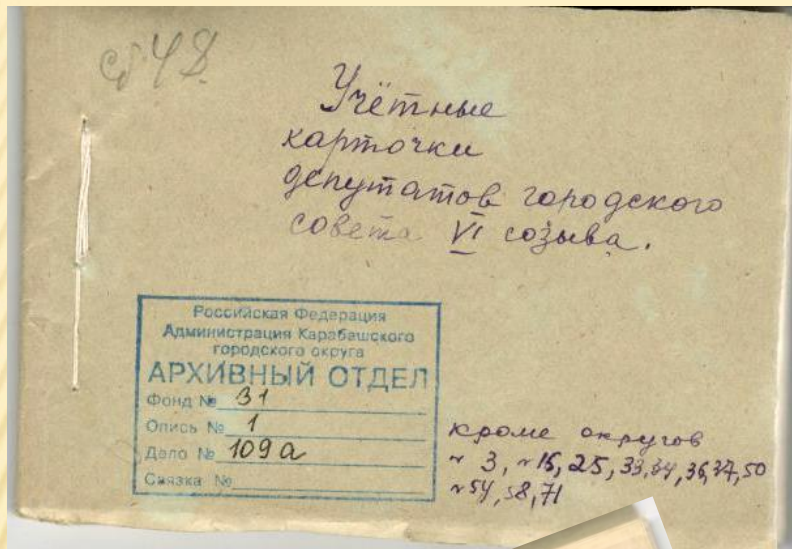 Учётные
карточки
депутатов городского
совета VI созыва.
Российская Федерация
Администрация Карабашского
городского округа
АРХИВНЫЙ ОТДЕЛ
Фонд № 31
Опись № 1
Дело № 109а
Связка №
кроме округов
№ 3, № 15, 25, 33, 34, 36, 37, 50
№ 54, 58, 71